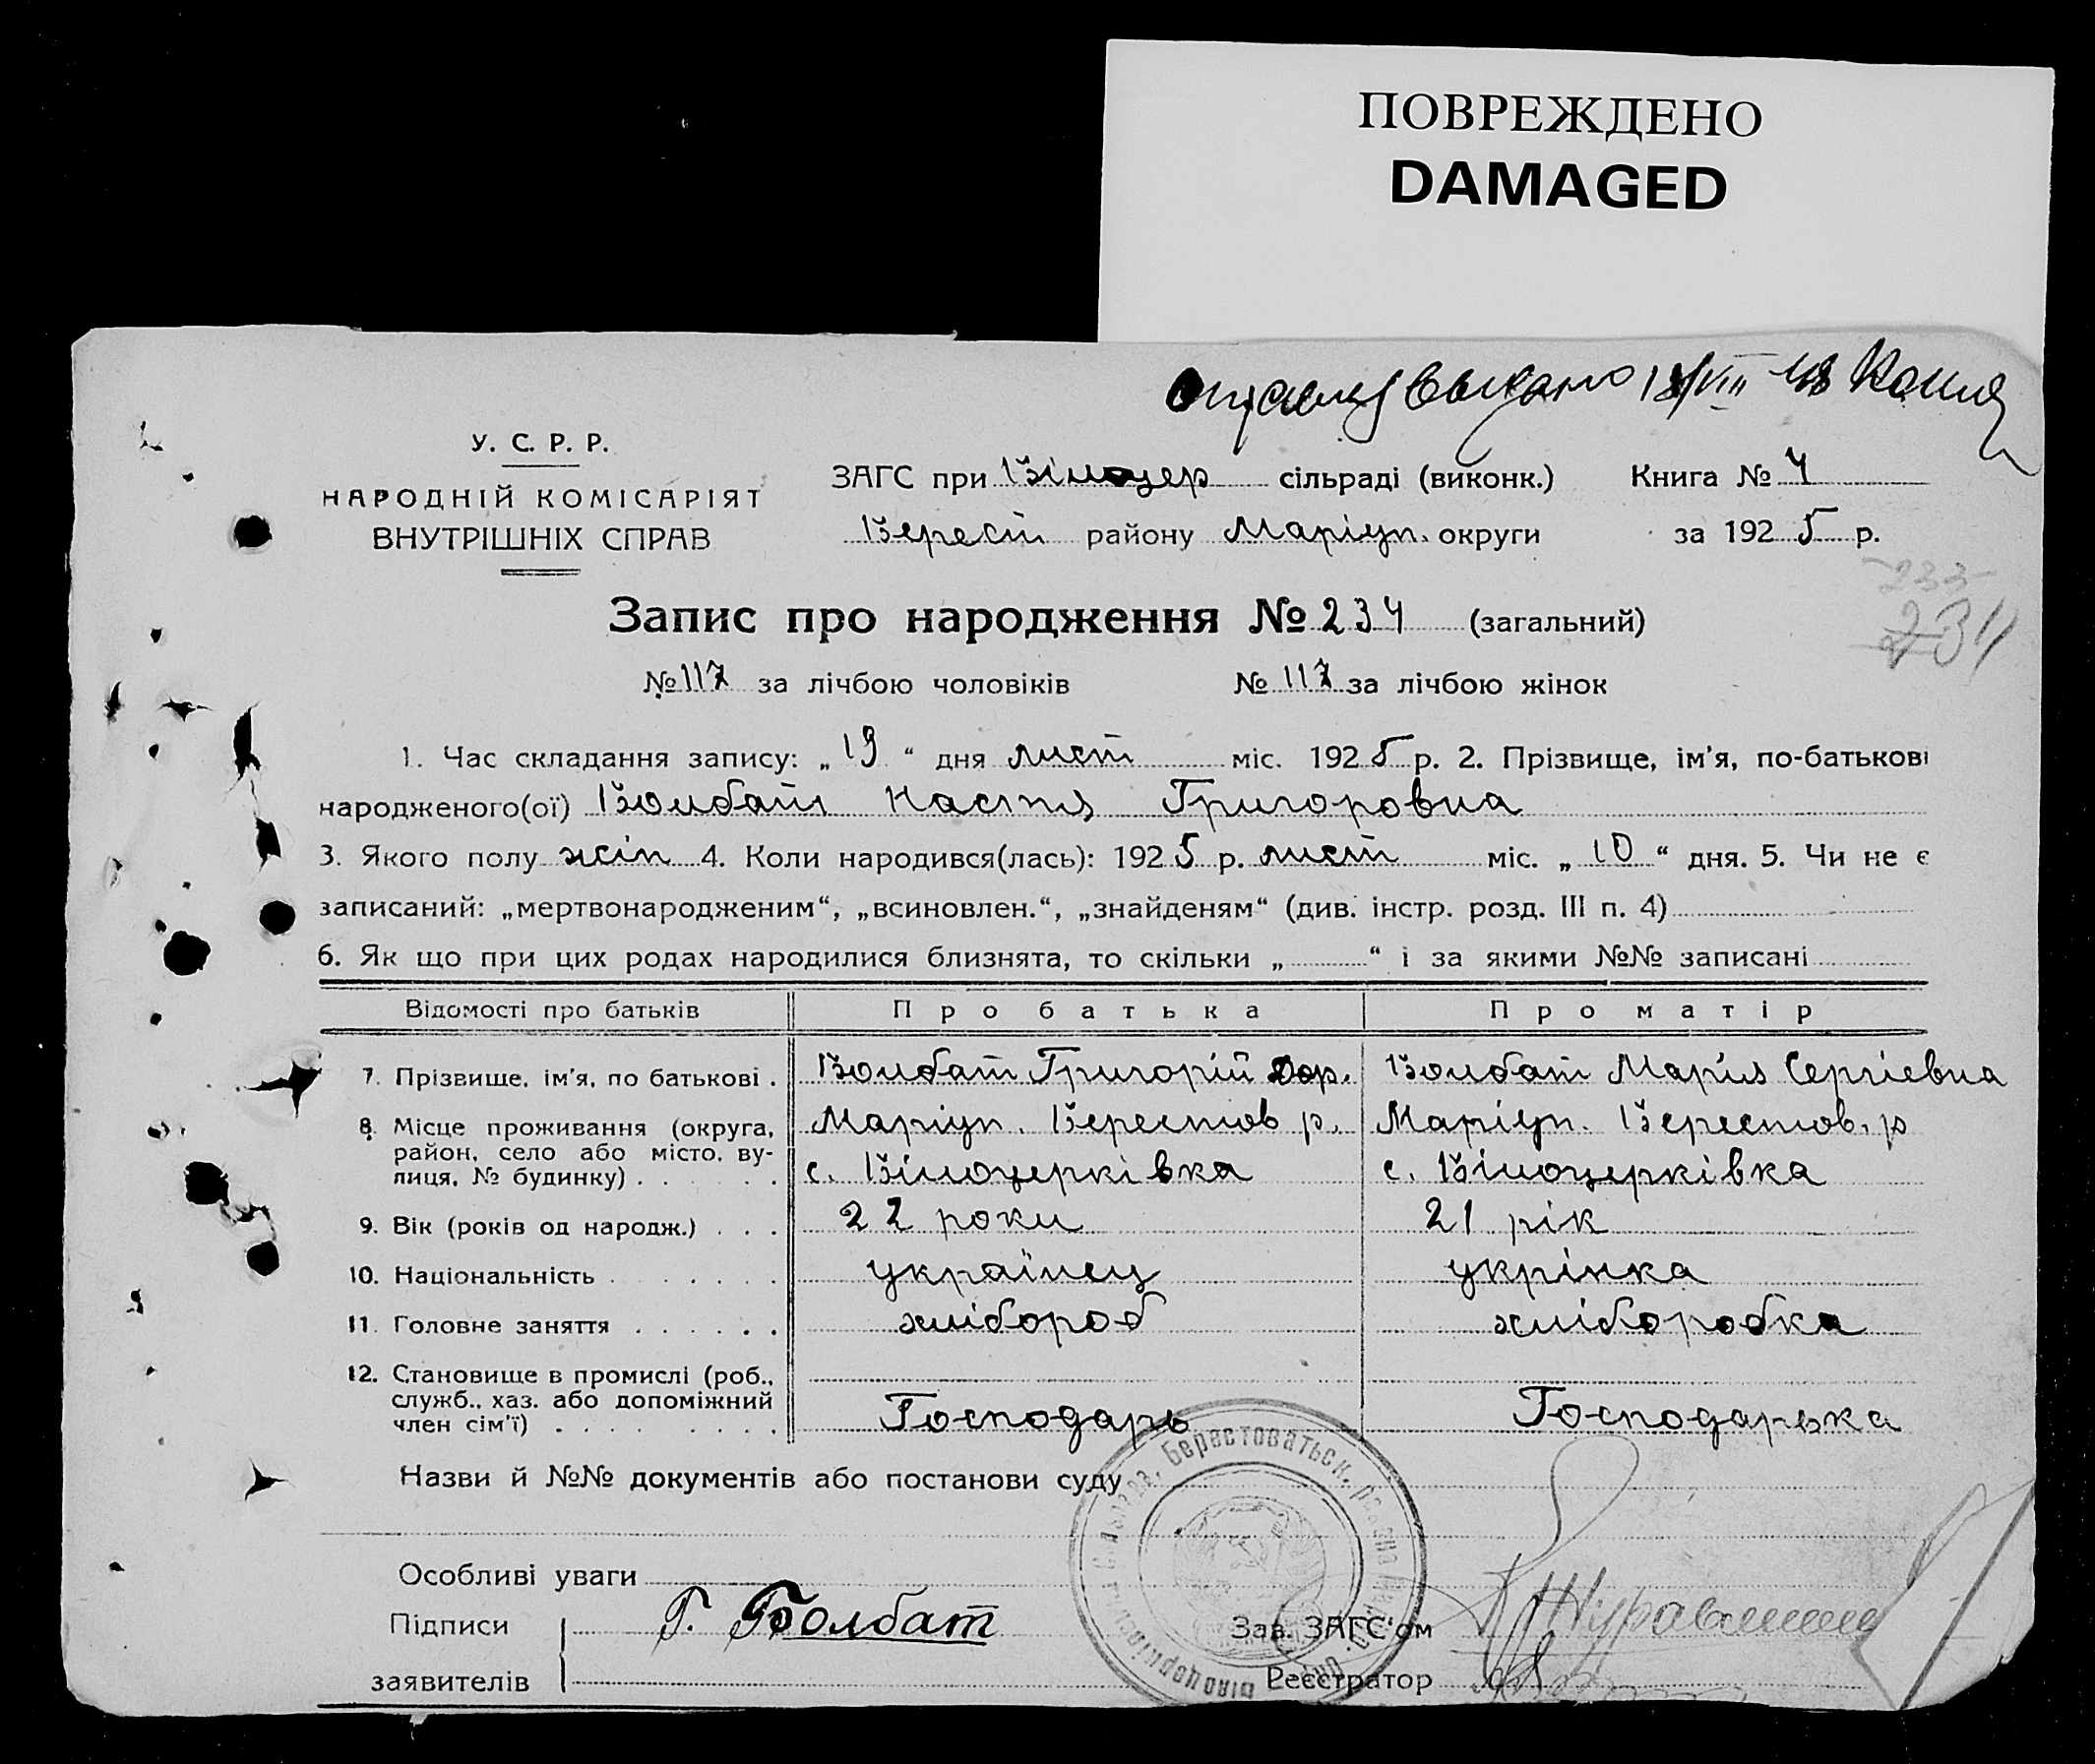 ПОВРЕЖДЕНО
DAMAGED
выдано 18/VIII 48 Копия
У. С. Р. Р.
НАРОДНІЙ КОМІСАРІЯТ
ВНУТРІШНІХ СПРАВ
ЗАГС при Білоцер сільраді (виконк.) Книга № 4
Берест району Маріуп. округи за 1925 р.
233
234
Запис про народження № 234 (загальний)
№ 117 за лічбою чоловіків № 117 за лічбою жінок
1. Час складання запису: „19“ дня лист міс. 1925 р. 2. Прізвище, ім'я, по-батькові
народженого(ої) Болбат Настя Григоровна
3. Якого полу жін 4. Коли народився(лась): 1925 р. лист міс. „10“ дня. 5. Чи не є
записаний: „мертвонародженим“, „всиновлен.“, „знайденям“ (див. інстр. розд. III п. 4)
6. Як що при цих родах народилися близнята, то скільки „ “ і за якими №№ записані
Відомості про батьків Про батька Про матір
7. Прізвище, ім'я, по батькові . Болбат Григорій Дор. Болбат Марія Сергієвна
8. Місце проживання (округа, Маріуп. Берестов р. Маріуп. Берестов. р
район, село або місто, ву-
лиця, № будинку) . . . . . . с. Білоцерківка с. Білоцерківка
9. Вік (років од народж.) . . . 22 роки 21 рік
10. Національність . . . . . . . українец укрінка
11. Головне заняття . . . . . . хлібороб хліборобка
12. Становище в промислі (роб.,
служб., хаз. або допоміжний
член сім'ї) . . . . . . . . Господарь Господарька
Назви й №№ документів або постанови суду
Берестоватьск. района
Білоцерківськ
Особливі уваги
Підписи Г. Болбат Зав. ЗАГС'ом
заявителів Реєстратор